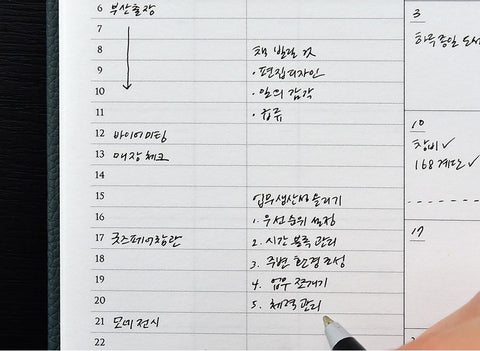 6 부산출장
7
8
9
10
11
12 바이어미팅
13 매장체크
14
15
16
17 굿즈페어참관
18
19
20
21 모네전시
22
책 빌릴 것
· 편집디자인
· 일의 감각
업무생산성 올리기
1. 우선순위 설정
2. 시간 블록 관리
3. 주변 환경 조성
4. 업무 쪼개기
5. 체력관리
3
하루종일 도서
10
창비✓
168계단✓
17